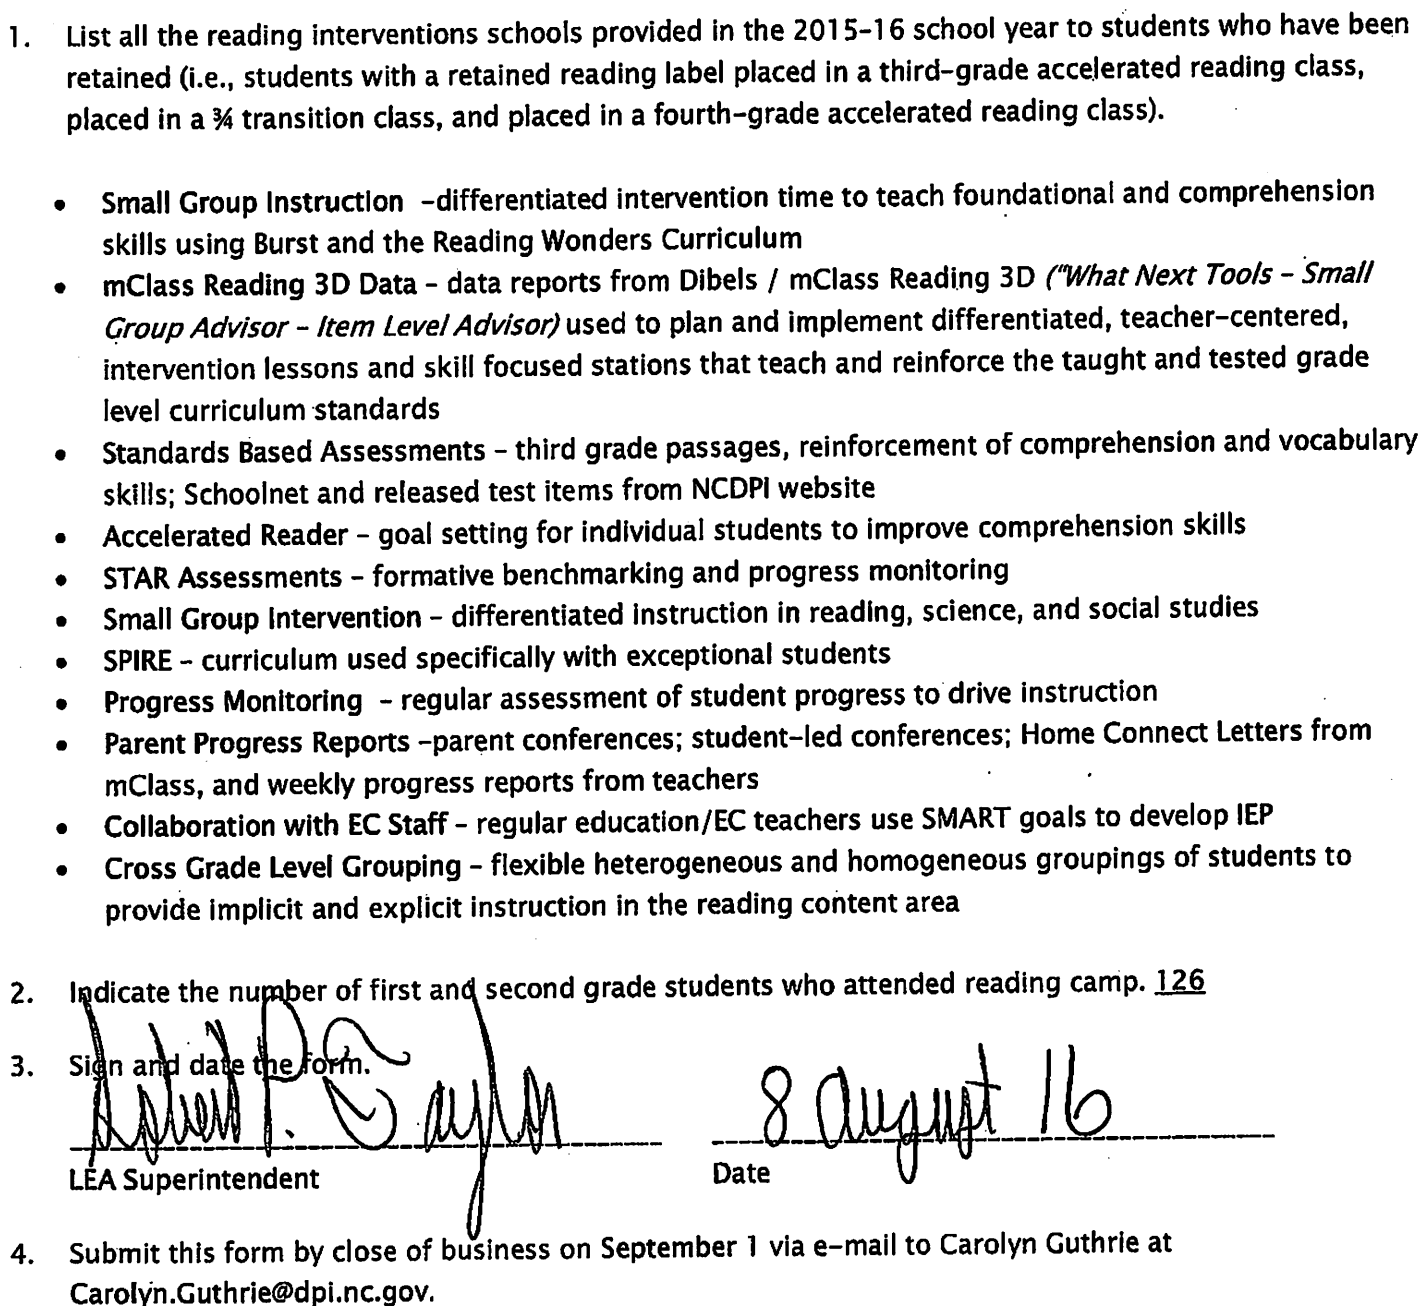 1. List all the reading interventions schools provided in the 2015-16 school year to students who have been
retained (i.e., students with a retained reading label placed in a third-grade accelerated reading class,
placed in a ¾ transition class, and placed in a fourth-grade accelerated reading class).
• Small Group Instruction -differentiated intervention time to teach foundational and comprehension
skills using Burst and the Reading Wonders Curriculum
• mClass Reading 3D Data - data reports from Dibels / mClass Reading 3D ("What Next Tools - Small
Group Advisor - Item Level Advisor) used to plan and implement differentiated, teacher-centered,
intervention lessons and skill focused stations that teach and reinforce the taught and tested grade
level curriculum standards
• Standards Based Assessments - third grade passages, reinforcement of comprehension and vocabulary
skills; Schoolnet and released test items from NCDPI website
• Accelerated Reader - goal setting for individual students to improve comprehension skills
• STAR Assessments - formative benchmarking and progress monitoring
• Small Group Intervention - differentiated instruction in reading, science, and social studies
• SPIRE - curriculum used specifically with exceptional students
• Progress Monitoring - regular assessment of student progress to drive instruction
• Parent Progress Reports -parent conferences; student-led conferences; Home Connect Letters from
mClass, and weekly progress reports from teachers
• Collaboration with EC Staff - regular education/EC teachers use SMART goals to develop IEP
• Cross Grade Level Grouping - flexible heterogeneous and homogeneous groupings of students to
provide implicit and explicit instruction in the reading content area
2. Indicate the number of first and second grade students who attended reading camp. 126
3. Sign and date the form.
P. Taylor 8 August 16
LEA Superintendent Date
4. Submit this form by close of business on September 1 via e-mail to Carolyn Guthrie at
Carolyn.Guthrie@dpi.nc.gov.